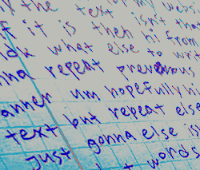 the text isn't that
if it is then hi from
idk what else to writ
nna repeat previous
anner um hopefully hi
text but repeat else
just gonna else is
t words